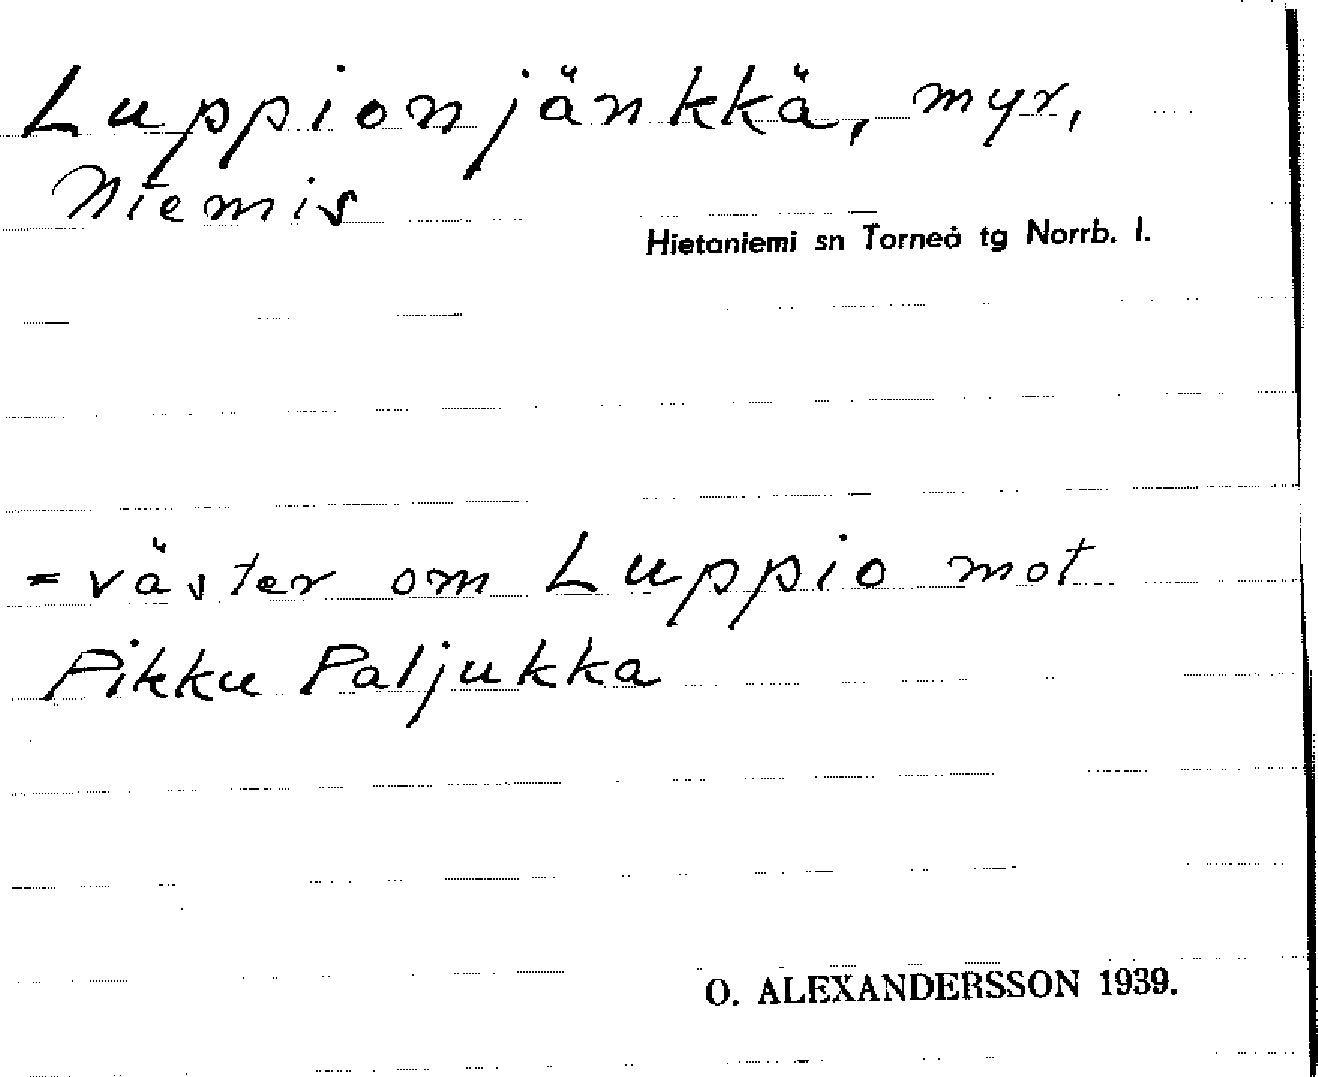 Luppionjänkkä, myr,
Niemis
Hietaniemi sn Torneå tg Norrb. l.
= väster om Luppio mot
Pikku Paljukka
O. ALEXANDERSSON 1939.